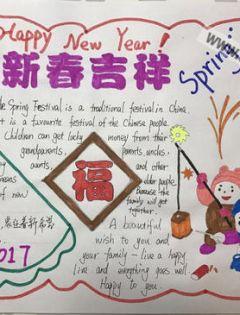 Happy New Year!
www.
新春吉祥
Spring
Spring Festival is a traditional festival in China.
It is a favourite festival of the Chinese people.
Children can get lucky money from their
grandparents, parents, uncles,
aunts, and other
older people,
because the
family will
get
together.
福
of new
2017
A beautiful
wish to you and
your family - live a happy
live and everything goes well.
Happy to you.